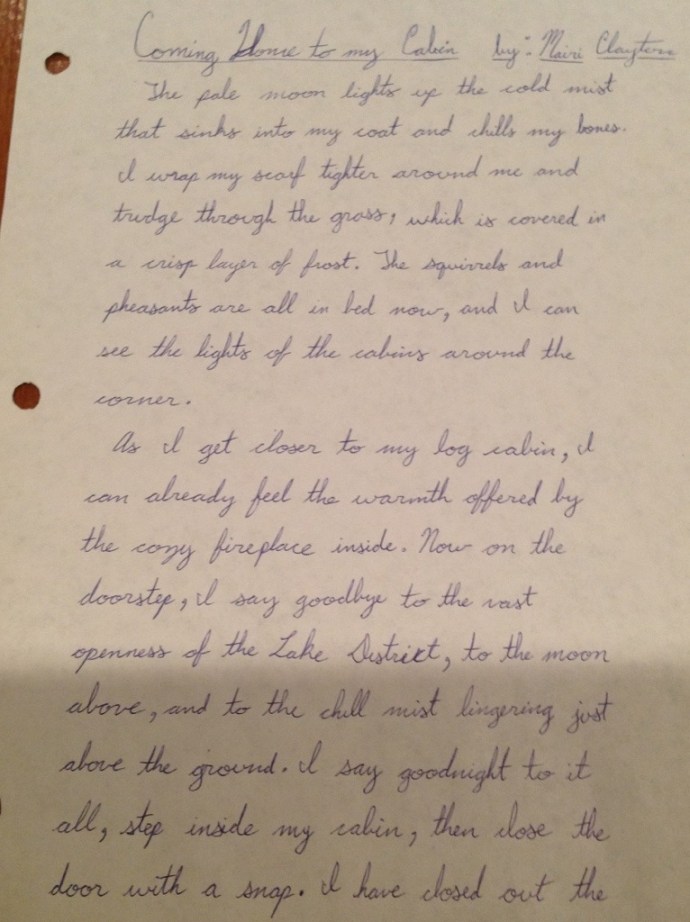 Coming Home to my Cabin by: Mairi Clayton
The pale moon lights up the cold mist
that sinks into my coat and chills my bones.
I wrap my scarf tighter around me and
trudge through the grass, which is covered in
a crisp layer of frost. The squirrels and
pheasants are all in bed now, and I can
see the lights of the cabins around the
corner.
As I get closer to my log cabin, I
can already feel the warmth offered by
the cozy fireplace inside. Now on the
doorstep, I say goodbye to the vast
openness of the Lake District, to the moon
above, and to the chill mist lingering just
above the ground. I say goodnight to it
all, step inside my cabin, then close the
door with a snap. I have closed out the